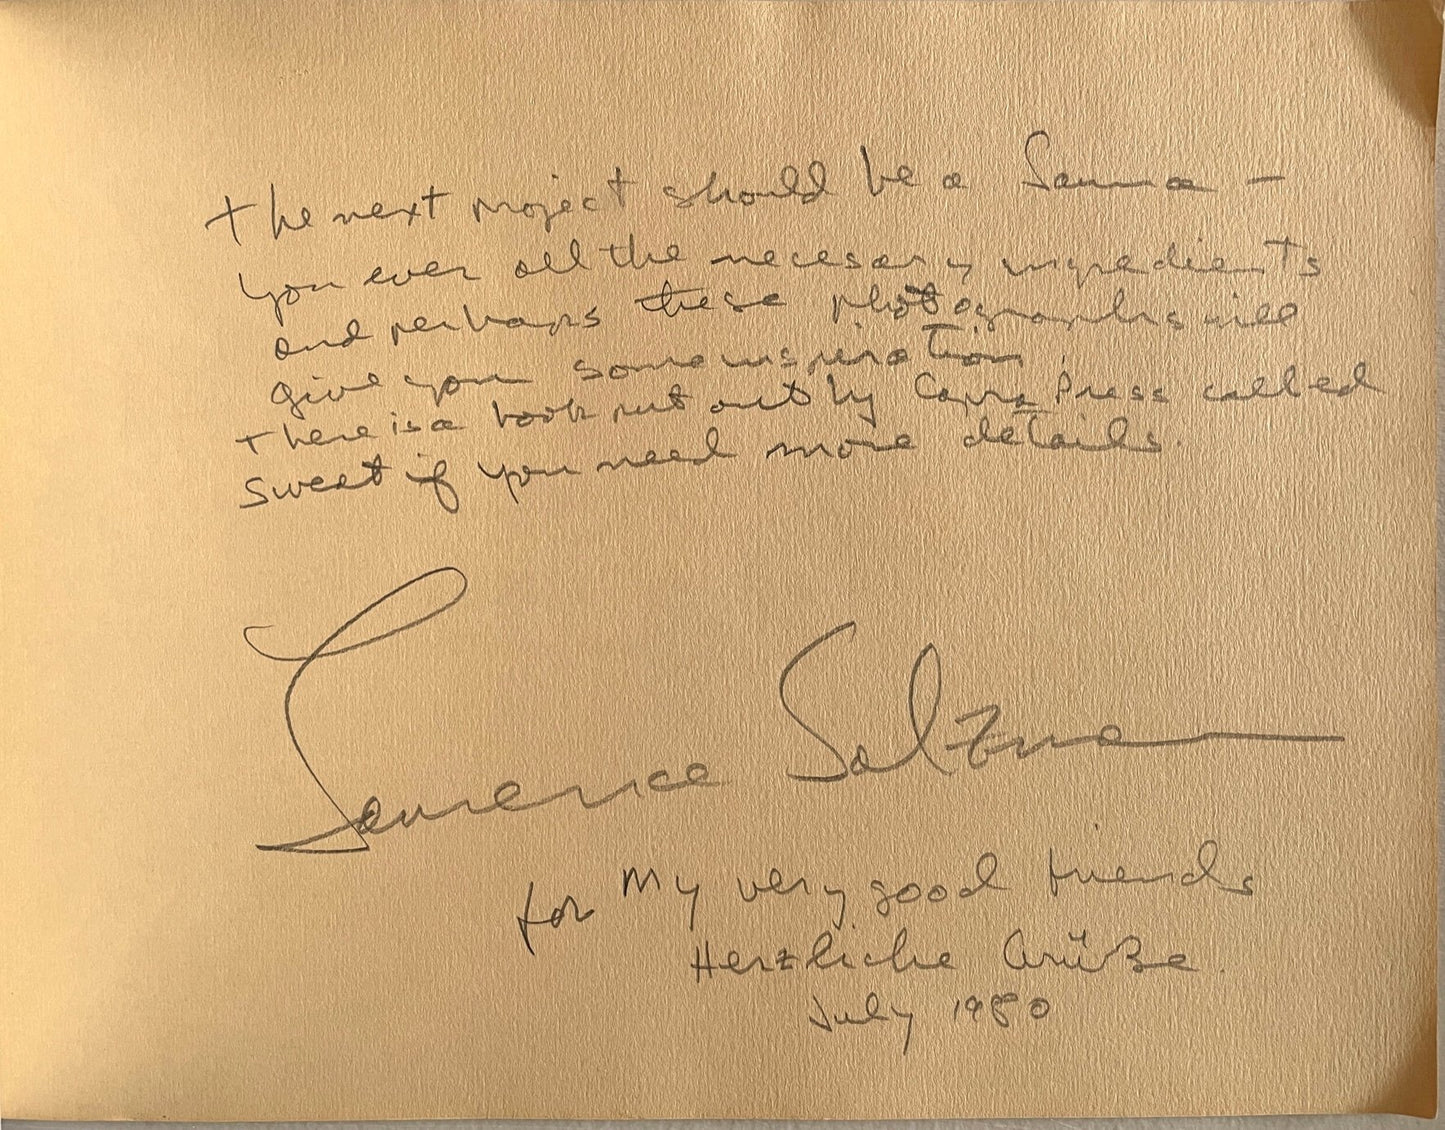 the next project should be a Sauna -
you even all the necesary ingredients
and perhaps these photographs will
give you some inspiration.
there is a book put out by Capra Press called
sweat if you need more details.
Laurence Salzman
for my very good friends
Herzliche Grüße.
July 1980